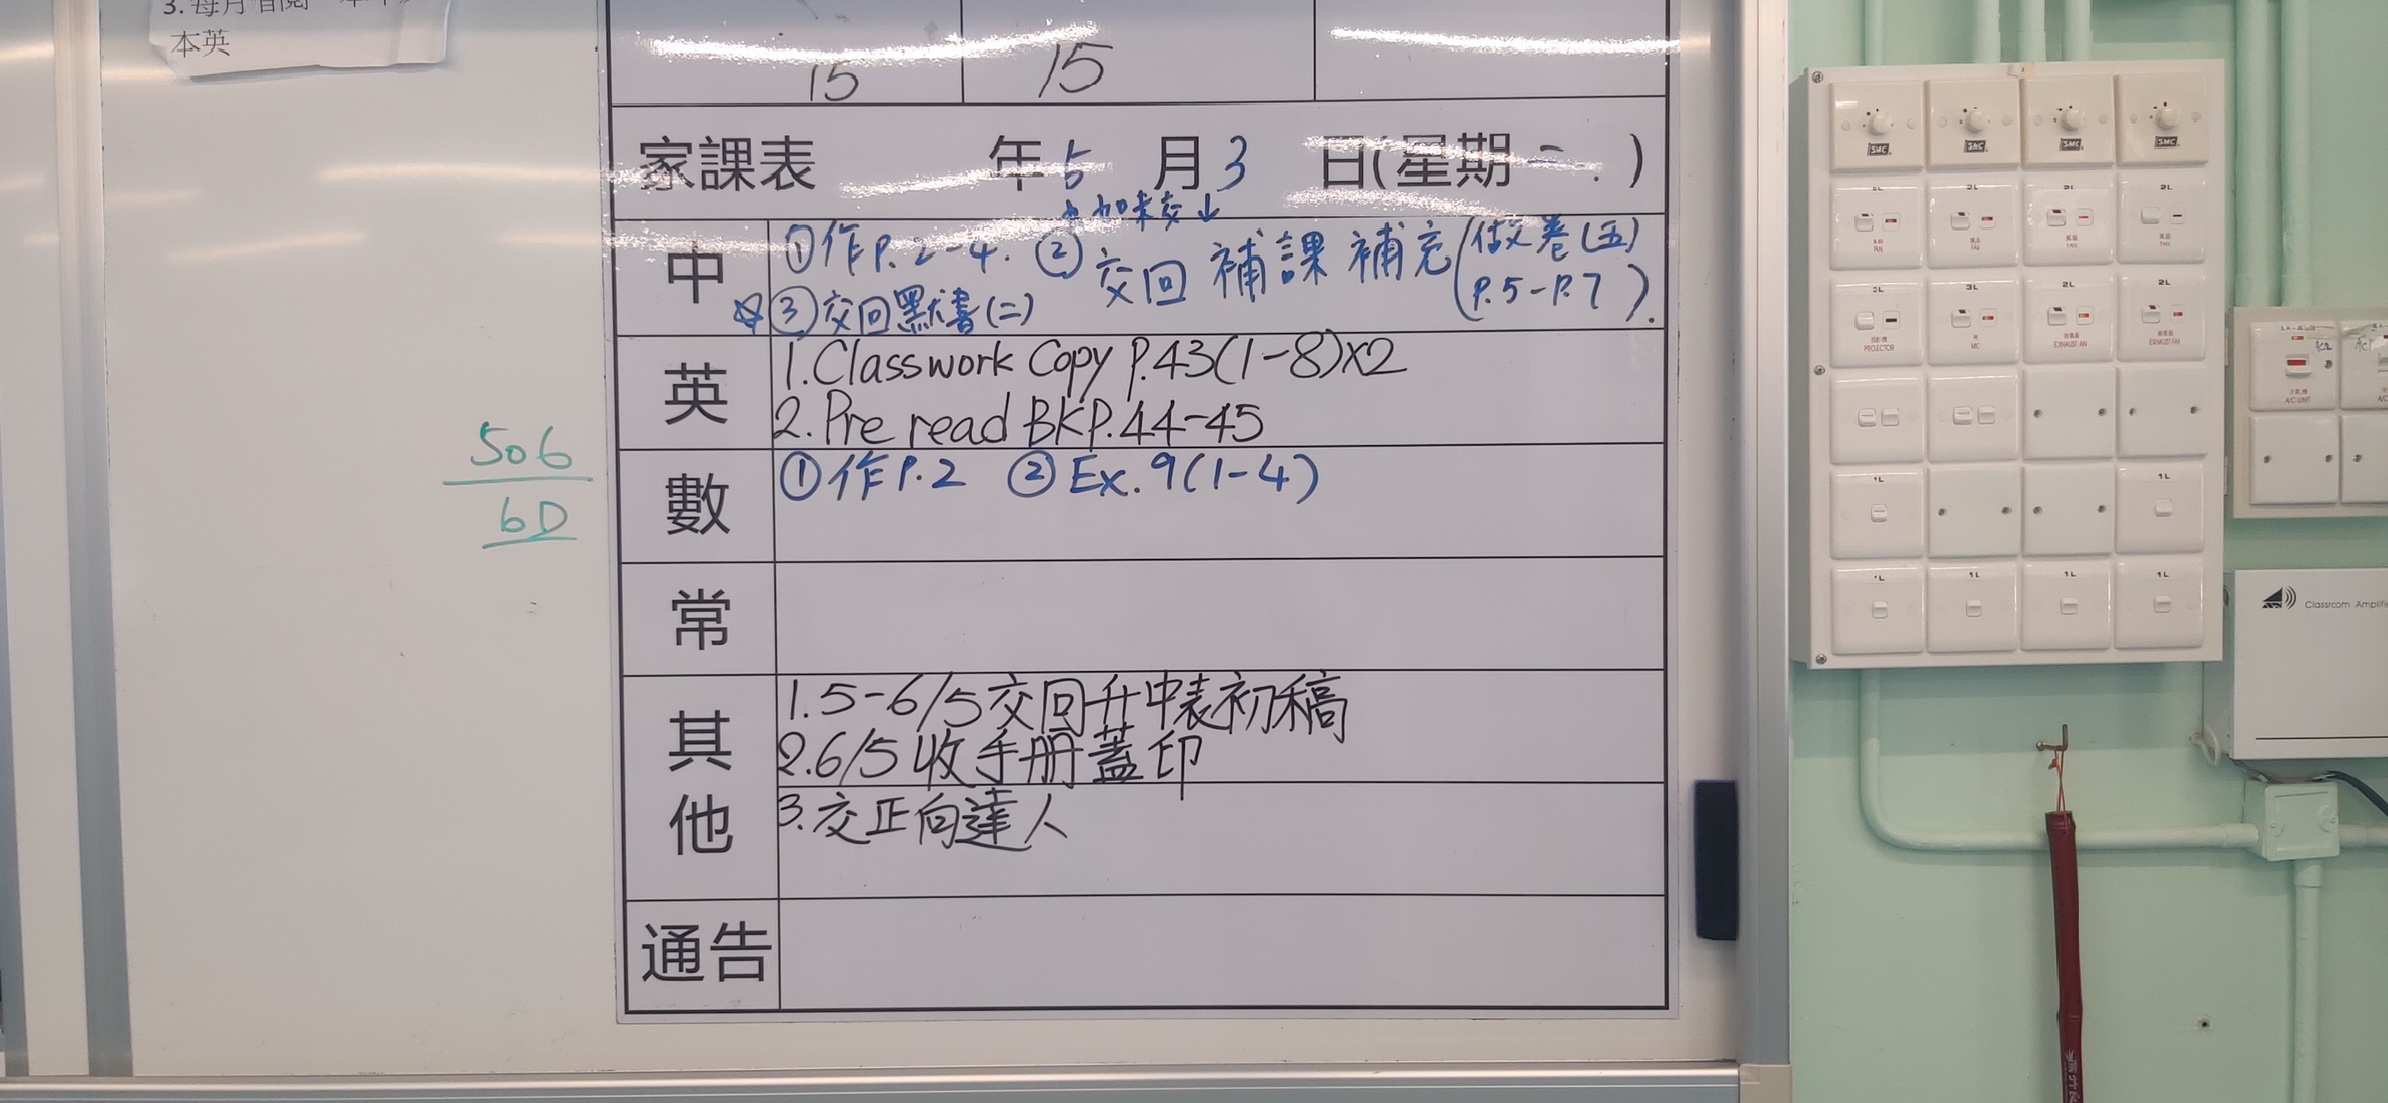 3. 每月借閱
本英
15 15
家課表 年 5 月 3 日(星期二.)
如未交↓
中 ①作P.2-4. ②交回補課補充(做卷(五)
P.5-P.7).
☆③交回默書(二)
英 1.Classwork Copy P.43(1-8)x2
2.Pre read BKP.44-45
數 ①作P.2 ②Ex.9(1-4)
506
6D
常
其他 1.5-6/5交回升中表初稿
2.6/5收手册蓋印
3.交正向達人
通告
SMC SMC SMC SMC
2L 2L 2L
FAN FAN FAN FAN
2L 3L 2L 2L
PROJECTOR MIC EXHAUST FAN EXHAUST FAN
A/C UNIT
1L 1L
1L 1L 1L 1L
Classroom